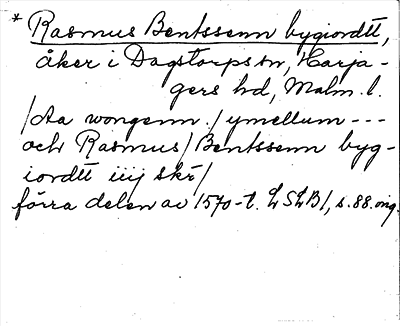 * Rasmus Bentssenn bygiordtt,
åker i Dagstorps sn, Harja-
gers hd, Malm. l.
/Aa wongenn ./ ymellum ---
och Rasmus / Bentssenn byg-
iordtt iiij skr/
förra delen av 1570-t. LSLB1, s. 88. orig.